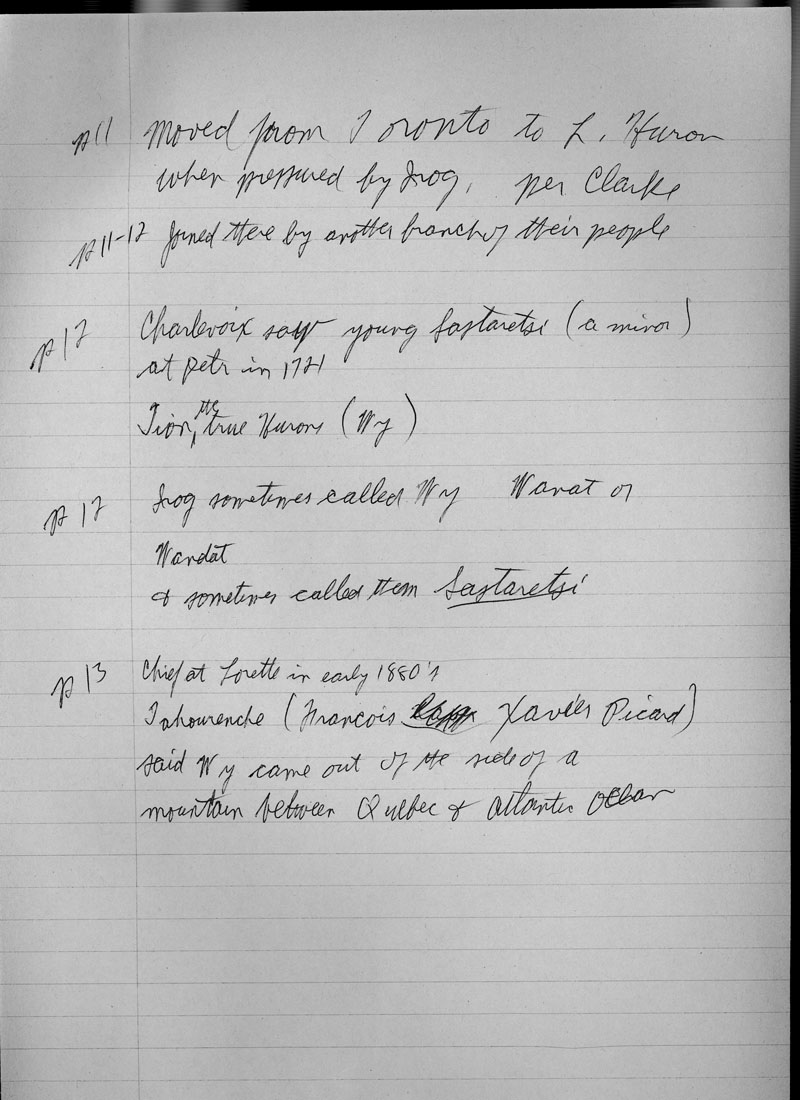 p 11 moved from Toronto to L. Huron
when pressured by Iroq, per Clarke
p 11-12 Joined there by another branch of their people
p 12 Charlevoix saw young Sastaretsi (a minor)
at Detr in 1721
Tion, the true Hurons (Wy)
p 12 Iroq sometimes called Wy Wanat or
Wandat
& sometimes called them Sastaretsi
p 13 Chief at Lorette in early 1880's
Tahourenche (Francois Xavier Picard)
said Wy came out of the side of a
mountain between Quebec & atlantic ocean